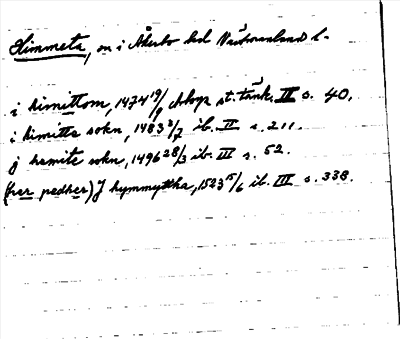 Himmeta, sn i Åkerbo hd Västmanland l.
i himittom, 1474 19/9 Arboga st. tänk. II s. 40.
i himitta sokn, 1483 2/7 ib. II s. 211.
j hemite sokn, 1496 28/3 ib. III s. 52.
(her pedher) J hymmyttha, 1523 15/6 ib. III s. 338.